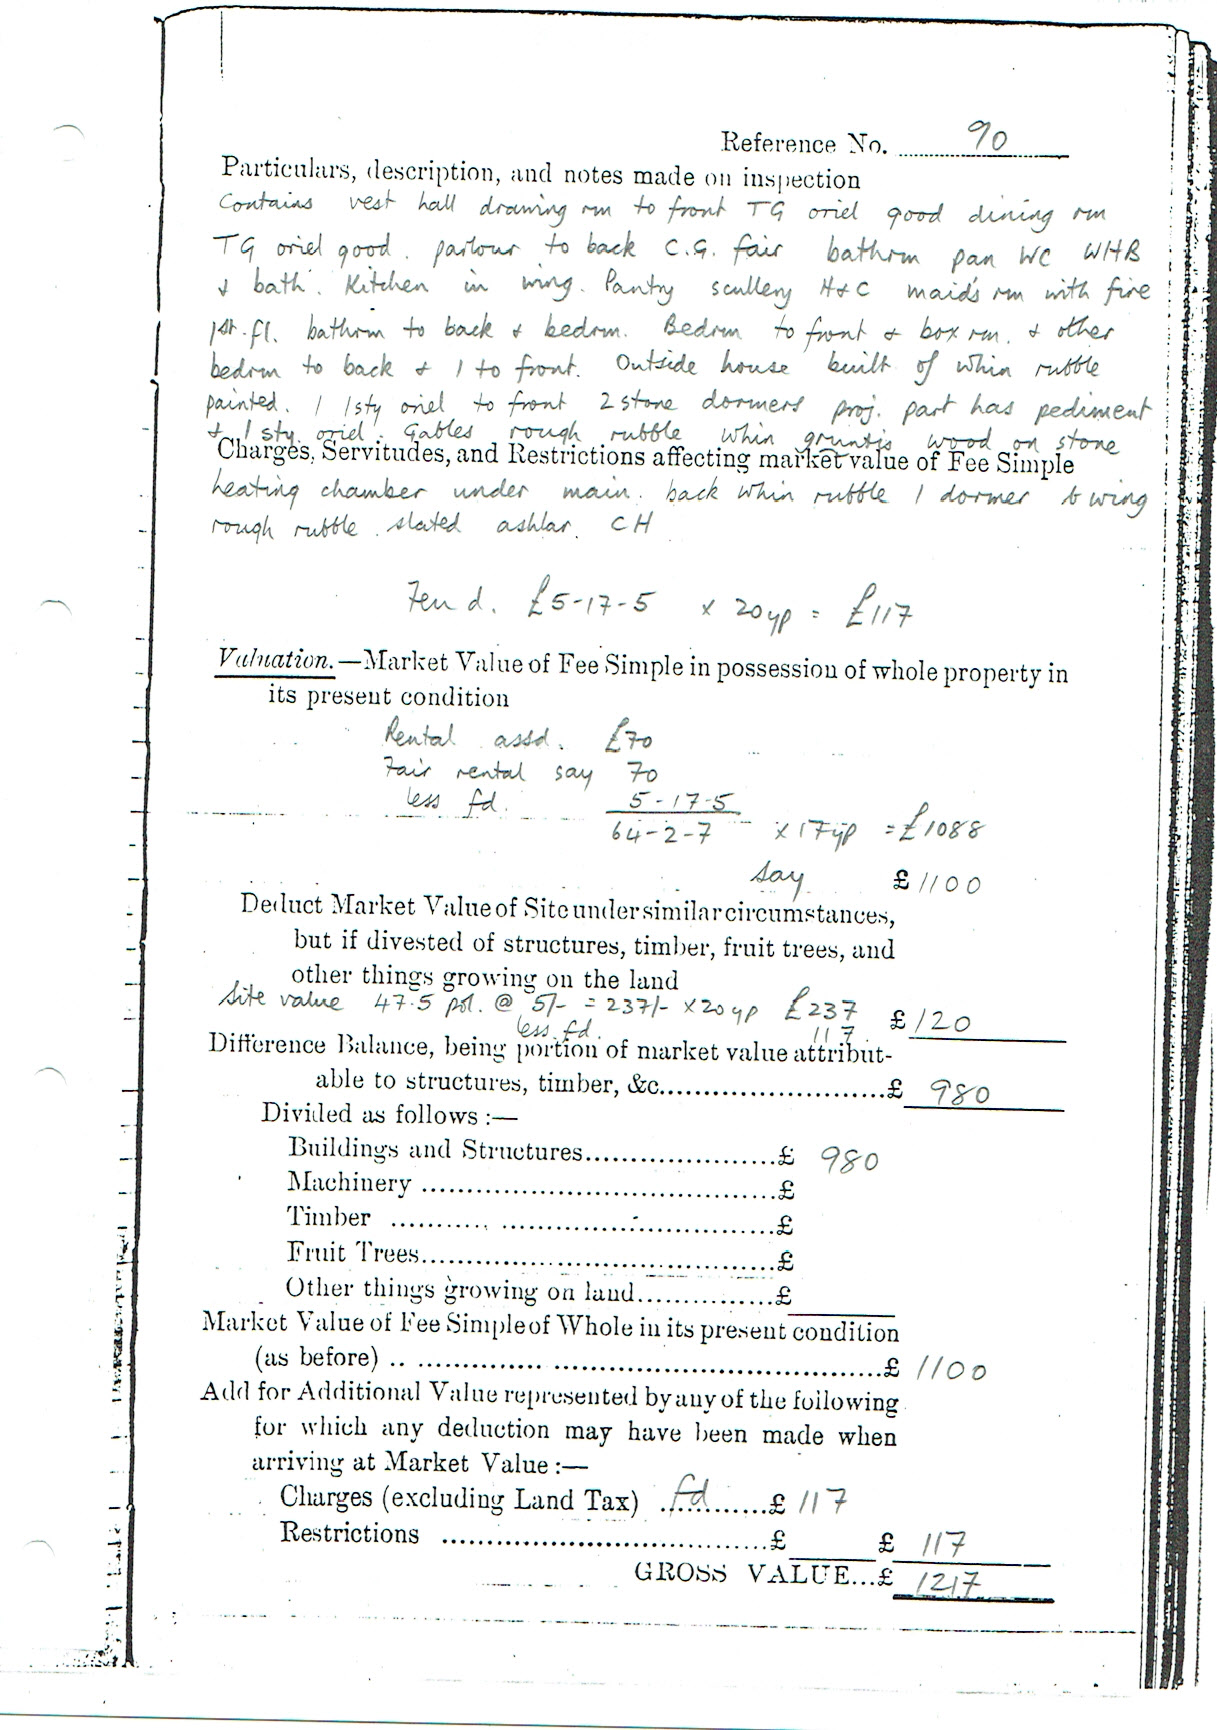 Reference No. 90
Particulars, description, and notes made on inspection
Contains vest hall drawing rm to front TG oriel good dining rm
TG oriel good. parlour to back C.G. fair bathrm pan WC WHB
& bath. Kitchen in wing. Pantry scullery H&C maids rm with fire
1st. fl. bathrm to back & bedrm. Bedrm to front & box rm. & other
bedrm to back & 1 to front. Outside house built of whin rubble
painted. 1 1sty oriel to front 2 stone dormers proj. part has pediment
& 1 sty. oriel. Gables rough rubble whin gruntis wood on stone
Charges, Servitudes, and Restrictions affecting market value of Fee Simple
heating chamber under main. back whin rubble 1 dormer & wing
rough rubble. slated ashlar. CH
Feu d. £5-17-5 x 20yp = £117
Valuation.—Market Value of Fee Simple in possession of whole property in
its present condition
Rental assd. £70
Fair rental say 70
less fd. 5-17-5
64-2-7 x 17yp = £1088
say £1100
Deduct Market Value of Site under similar circumstances,
but if divested of structures, timber, fruit trees, and
other things growing on the land
Site value 47.5 pol. @ 5/- = 237/- x 20yp £237 £120
less fd. 117
Difference Balance, being portion of market value attribut-
able to structures, timber, &c. £ 980
Divided as follows :—
Buildings and Structures £ 980
Machinery £
Timber £
Fruit Trees £
Other things growing on land £
Market Value of Fee Simple of Whole in its present condition
(as before) £ 1100
Add for Additional Value represented by any of the following
for which any deduction may have been made when
arriving at Market Value :—
Charges (excluding Land Tax) fd £ 117
Restrictions £ £ 117
GROSS VALUE...£ 1217